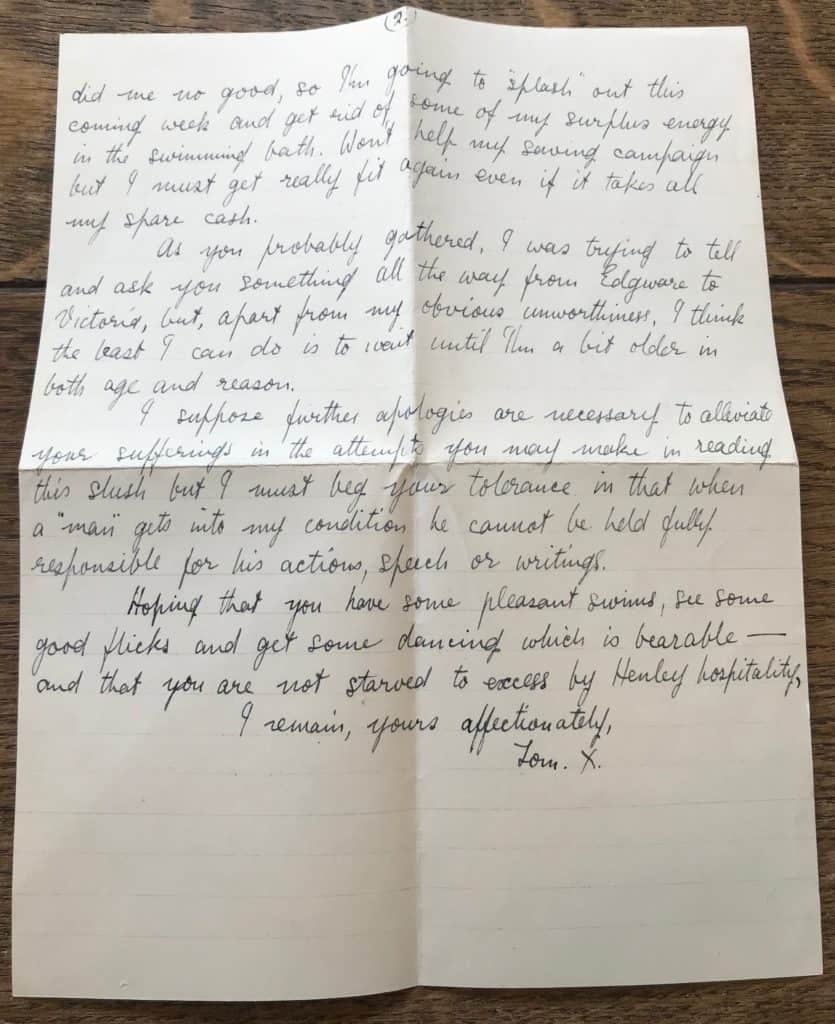 (2.)
did me no good, so I'm going to "splash" out this
coming week and get rid of some of my surplus energy
in the swimming bath. Won't help my saving campaign
but I must get really fit again even if it takes all
my spare cash.
As you probably gathered, I was trying to tell
and ask you something all the way from Edgware to
Victoria, but, apart from my obvious unworthiness, I think
the least I can do is to wait until I'm a bit older in
both age and reason.
I suppose further apologies are necessary to alleviate
your sufferings in the attempts you may make in reading
this slush but I must beg your tolerance in that when
a "man" gets into my condition he cannot be held fully
responsible for his actions, speech or writings.
Hoping that you have some pleasant swims, see some
good flicks and get some dancing which is bearable —
and that you are not starved to excess by Henley hospitality,
I remain, yours affectionately,
Tom. X.